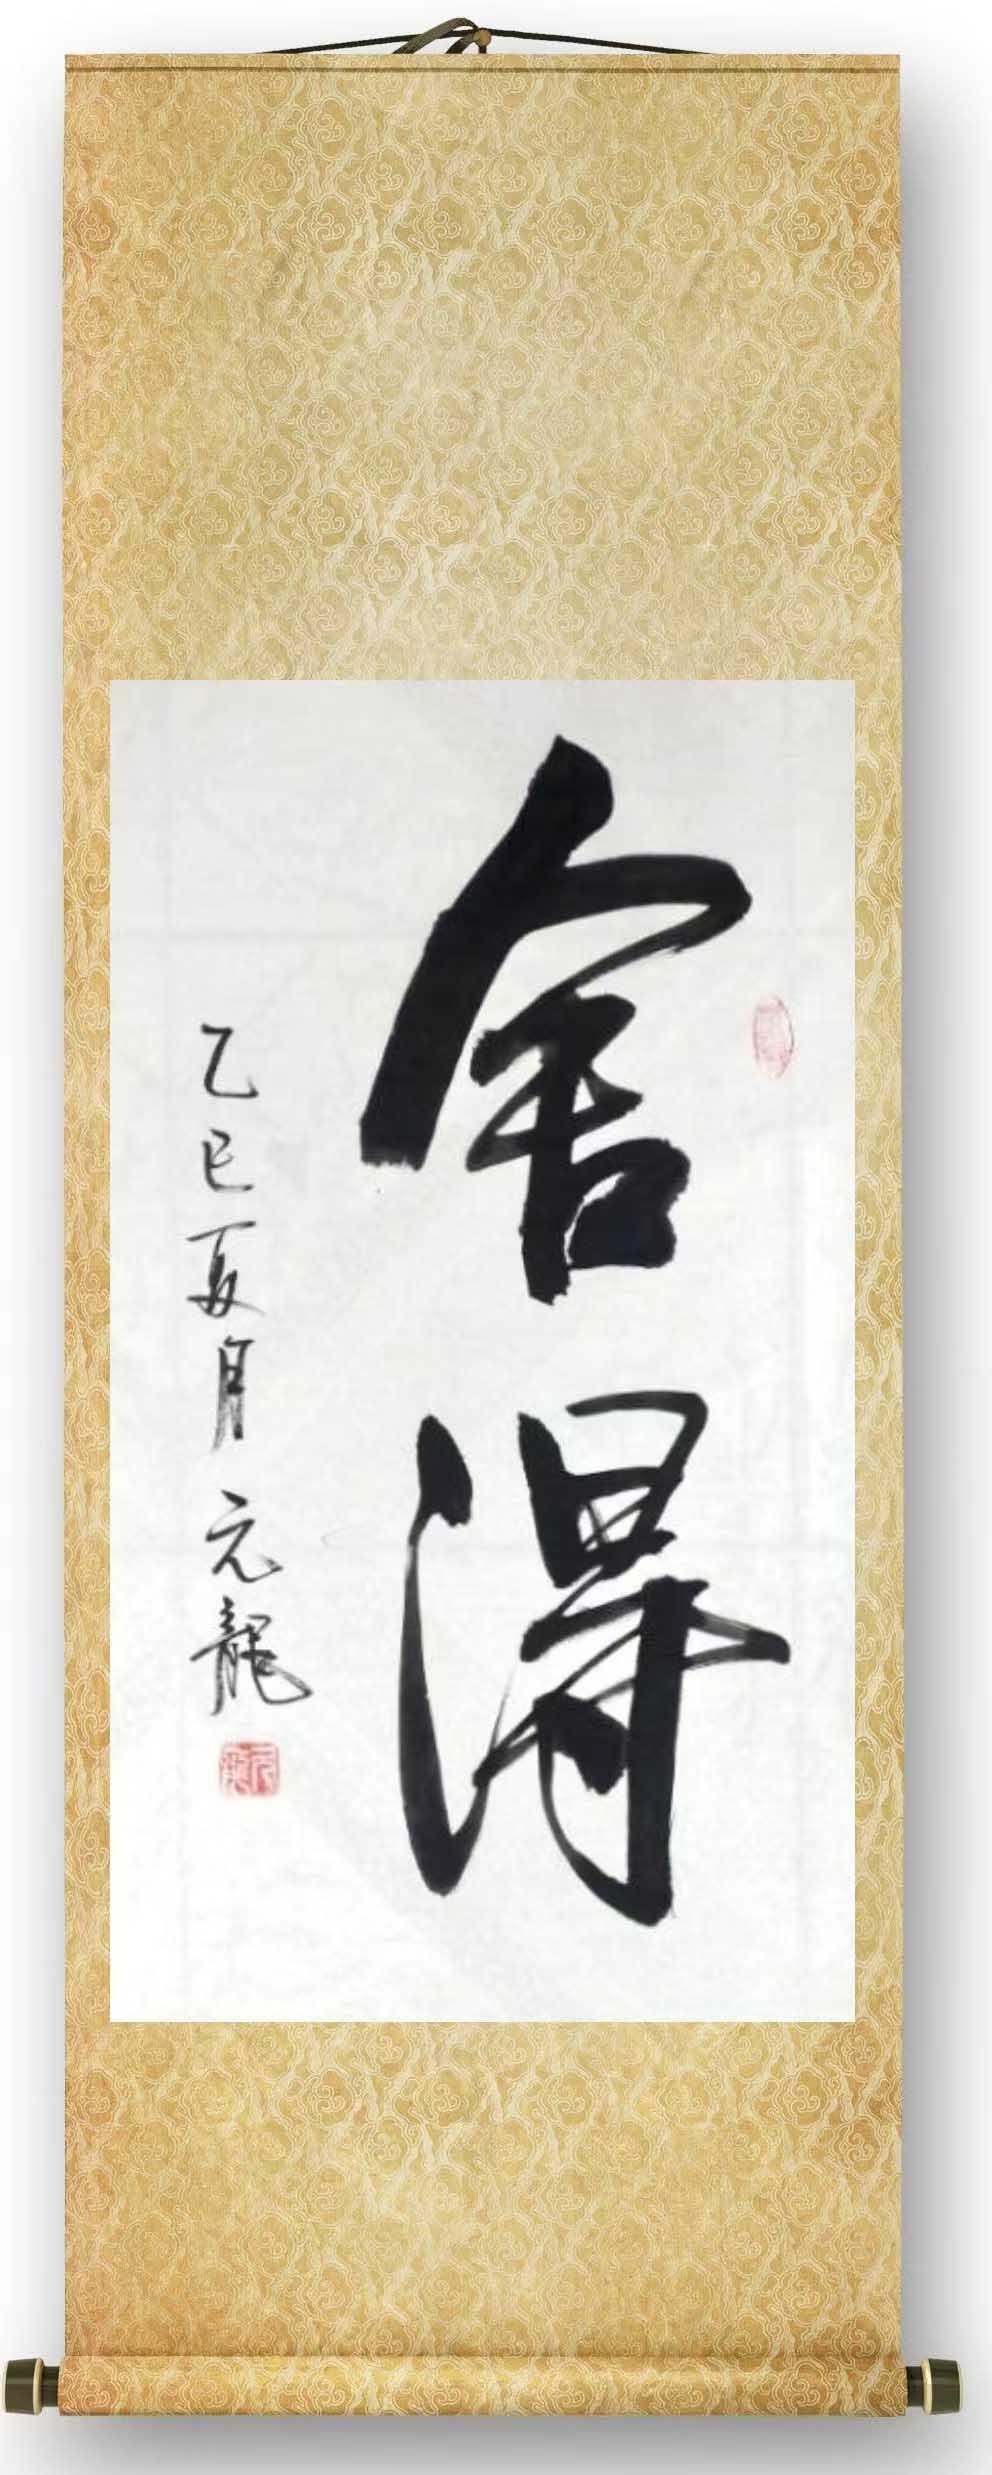 舍得
乙巳夏月 元龍
元龍